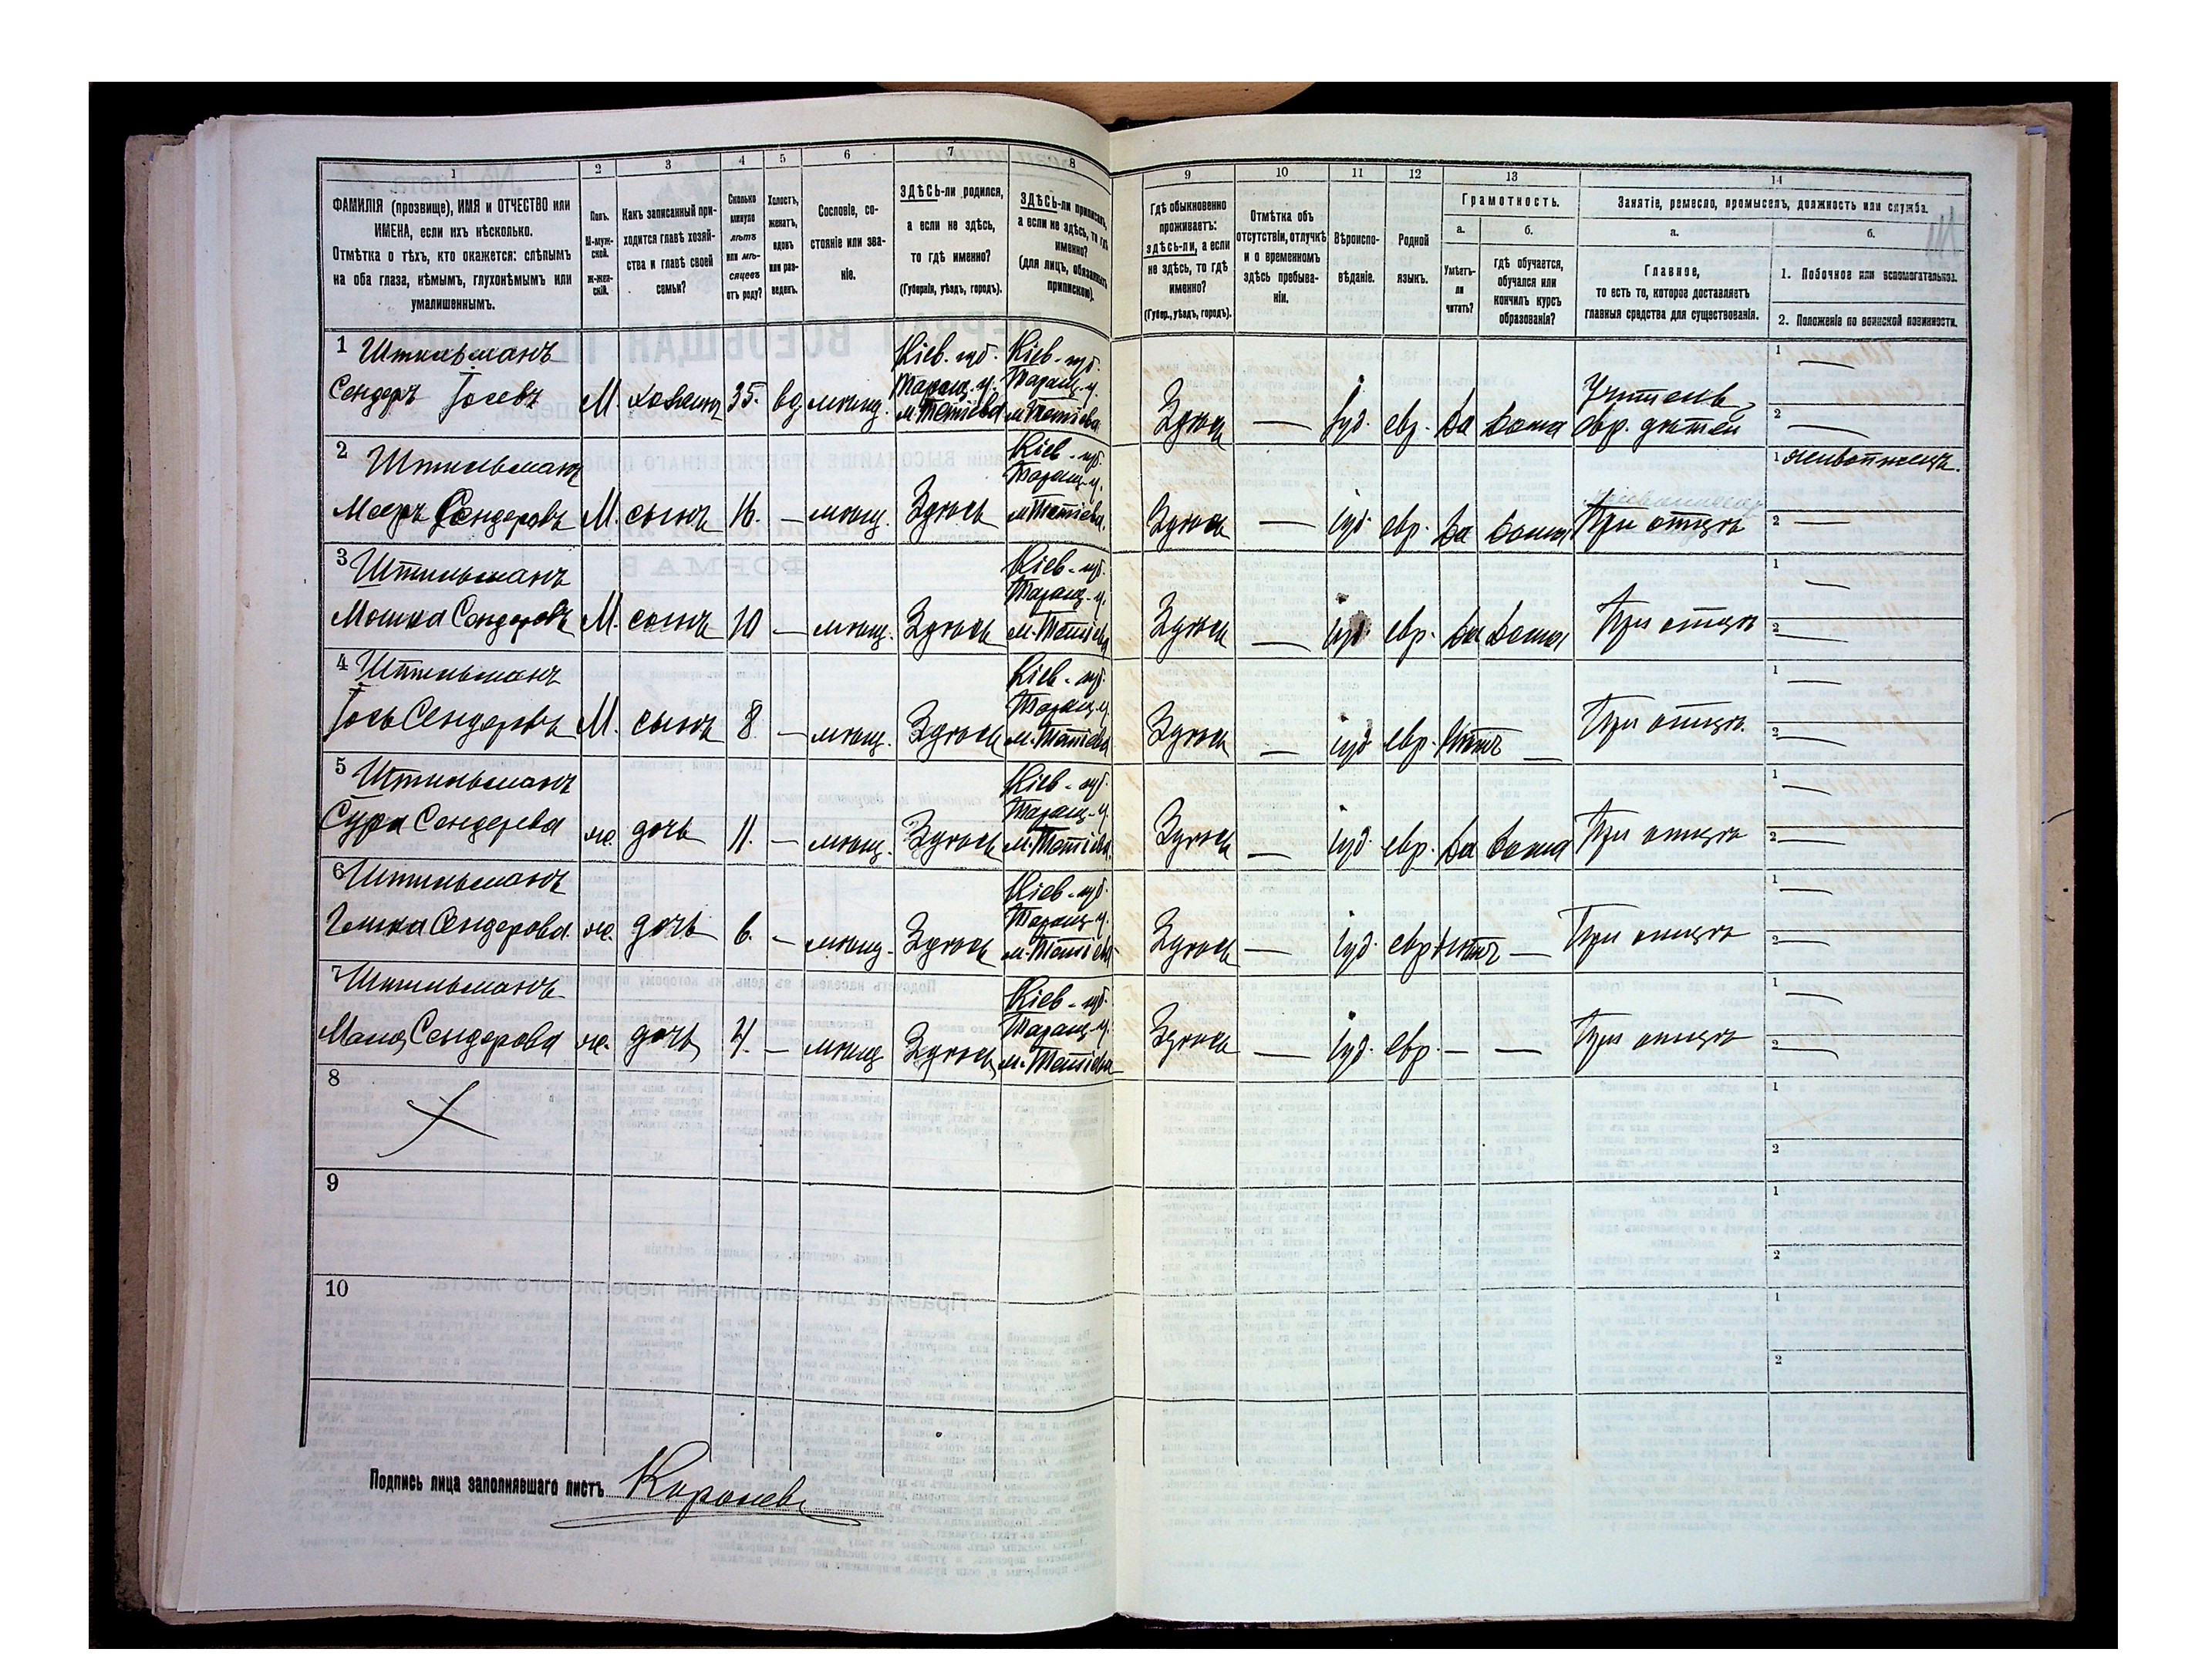 1 2 3 4 5 6 7 8 9 10 11 12 13 14
ФАМИЛІЯ (прозвище), ИМЯ и ОТЧЕСТВО или
ИМЕНА, если ихъ нѣсколько.
Отмѣтка о тѣхъ, кто окажется: слѣпымъ
на оба глаза, нѣмымъ, глухонѣмымъ или
умалишеннымъ.
Полъ.
М-муж-
ской.
Ж-жен-
скій.
Какъ записанный при-
ходится главѣ хозяй-
ства и главѣ своей
семьи?
Сколько
минуло
лѣтъ
или мѣ-
сяцевъ
отъ роду?
Холостъ,
женатъ,
вдовъ
или раз-
веденъ.
Сословіе, со-
стояніе или зва-
ніе.
ЗДѢСЬ-ли родился,
а если не здѣсь,
то гдѣ именно?
(Губернія, уѣздъ, городъ).
ЗДѢСЬ-ли приписанъ,
а если не здѣсь, то гдѣ
именно?
(для лицъ, обязанныхъ
припискою).
Гдѣ обыкновенно
проживаетъ:
здѣсь-ли, а если
не здѣсь, то гдѣ
именно?
(Губер., уѣздъ, городъ).
Отмѣтка объ
отсутствіи, отлучкѣ
и о временномъ
здѣсь пребыва-
ніи.
Вѣроиспо-
вѣданіе.
Родной
языкъ.
Грамотность.
а.
Умѣетъ-
ли
читать?
б.
гдѣ обучается,
обучался или
кончилъ курсъ
образованія?
Занятіе, ремесло, промыселъ, должность или служба.
а.
Главное,
то есть то, которое доставляетъ
главныя средства для существованія.
б.
1. Побочное или вспомогательное.
2. Положеніе по воинской повинности.
1 Штильманъ Кіев. губ. Кіев. губ. 1 —
Таращ. у. Таращ. у. Учитель
Сендеръ Іосевъ М. хозяинъ 35. вд мѣщ. м. Тетіева м. Тетіева Здѣсь — іуд. евр. да дома евр. дѣтей 2 —
2 Штильманъ Кіев. губ. 1
Таращ. у.
Мееръ Сендеровъ М. сынъ 16. — мѣщ. Здѣсь м. Тетіева. Здѣсь — іуд. евр. да дома При отцѣ 2 —
3 Штильманъ Кіев. губ. 1 —
Таращ. у.
Мошка Сендеровъ М. сынъ 10 — мѣщ. Здѣсь м. Тетіева Здѣсь — іуд. евр. да дома При отцѣ 2 —
4 Штильманъ Кіев. губ. 1 —
Таращ. у.
Іось Сендеровъ М. сынъ 8 — мѣщ. Здѣсь м. Тетіева Здѣсь — іуд. евр. нѣтъ — При отцѣ. 2 —
5 Штильманъ Кіев. губ. 1 —
Таращ. у.
Сура Сендерева ж. дочь 11. — мѣщ. Здѣсь м. Тетіева. Здѣсь — іуд. евр. да дома При отцѣ 2 —
6 Штильманъ Кіев. губ. 1 —
Таращ. у.
Сендерова ж. дочь 6. — мѣщ. Здѣсь м. Тетіева Здѣсь — іуд. евр. нѣтъ — При отцѣ 2 —
7 Штильманъ Кіев. губ. 1 —
Таращ. у.
Сендерова ж. дочь 4. — мѣщ. Здѣсь м. Тетіева Здѣсь — іуд. евр. — — При отцѣ 2 —
8 1
2
9 1
2
10 1
2
Подпись лица заполнявшаго листъ